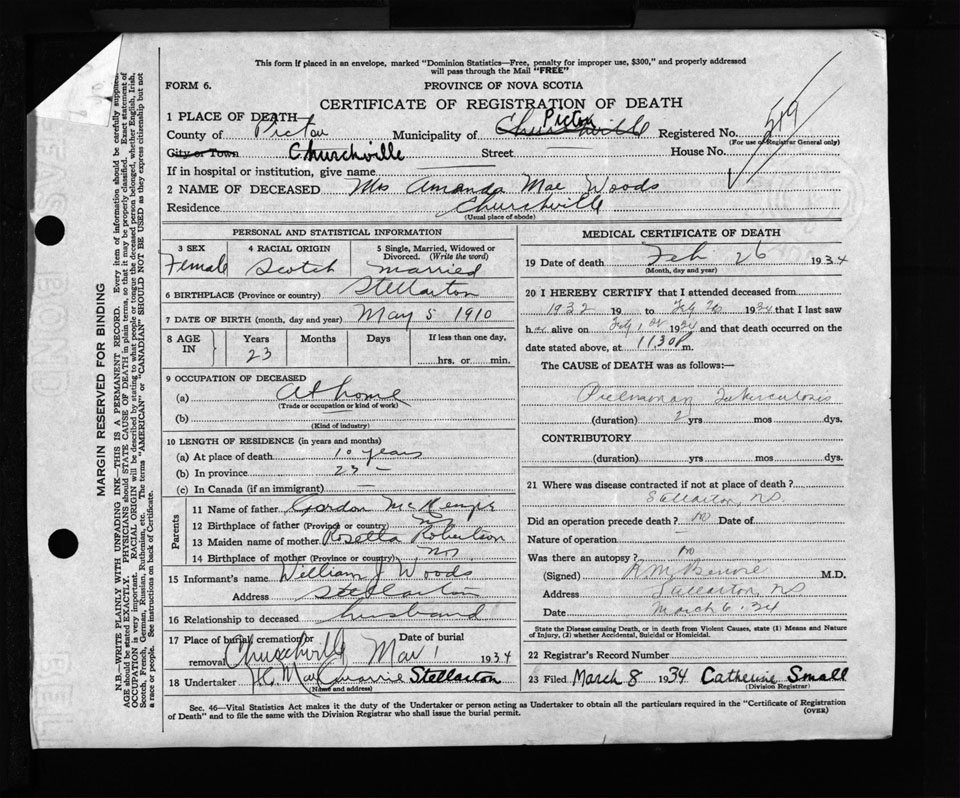 This form if placed in an envelope, marked "Dominion Statistics—Free, penalty for improper use, $300," and properly addressed
will pass through the Mail "FREE"
FORM 6. PROVINCE OF NOVA SCOTIA
CERTIFICATE OF REGISTRATION OF DEATH
1 PLACE OF DEATH Pictou
County of Pictou Municipality of Churchville Registered No. 519
(For use of Registrar General only)
City or Town Churchville Street House No.
If in hospital or institution, give name
2 NAME OF DECEASED Mrs Amanda Mae Woods
Residence Churchville
(Usual place of abode)
PERSONAL AND STATISTICAL INFORMATION
3 SEX 4 RACIAL ORIGIN 5 Single, Married, Widowed or
Divorced. (Write the word)
Female Scotch Married
6 BIRTHPLACE (Province or country) Stellarton
7 DATE OF BIRTH (month, day and year) May 5 1910
8 AGE IN Years Months Days If less than one day,
23 hrs. or min.
9 OCCUPATION OF DECEASED
(a) At home
(Trade or occupation or kind of work)
(b)
(Kind of industry)
10 LENGTH OF RESIDENCE (in years and months)
(a) At place of death 10 years
(b) In province 23 —
(c) In Canada (if an immigrant) —
Parents
11 Name of father Gordon McKenzie
12 Birthplace of father (Province or country) NS
13 Maiden name of mother Rosella Robertson
14 Birthplace of mother (Province or country) NS
15 Informant's name William J Woods
Address Stellarton
16 Relationship to deceased husband
17 Place of burial, cremation or Date of burial
removal Churchville Mar 1 1934
18 Undertaker Stellarton
(Name and address)
MEDICAL CERTIFICATE OF DEATH
19 Date of death Feb 26 1934
(Month, day and year)
20 I HEREBY CERTIFY that I attended deceased from
1932 19 to Feb 26 1934 that I last saw
h er alive on Feb 1934 and that death occurred on the
date stated above, at 11.30 P m.
The CAUSE of DEATH was as follows:—
Pulmonary Tuberculosis
(duration) 2 yrs mos dys.
CONTRIBUTORY
(duration) yrs mos dys.
21 Where was disease contracted if not at place of death?
Stellarton, N.S.
Did an operation precede death? no Date of
Nature of operation —
Was there an autopsy? no
(Signed) M.D.
Address Stellarton, NS
Date March 6 '34
State the Disease causing Death, or in death from Violent Causes, state (1) Means and Nature
of Injury, (2) whether Accidental, Suicidal or Homicidal.
22 Registrar's Record Number
23 Filed March 8 1934 Catherine Small
(Division Registrar)
Sec. 46—Vital Statistics Act makes it the duty of the Undertaker or person acting as Undertaker to obtain all the particulars required in the "Certificate of Registration
of Death" and to file the same with the Division Registrar who shall issue the burial permit. (OVER)
MARGIN RESERVED FOR BINDING
N.B.—WRITE PLAINLY WITH UNFADING INK—THIS IS A PERMANENT RECORD. Every item of information should be carefully supplied.
AGE should be stated EXACTLY. PHYSICIANS should STATE CAUSE OF DEATH in plain terms, so that it may be properly classified. Exact statement of
OCCUPATION is very important. RACIAL ORIGIN will be described by stating to what people or tongue the deceased person belonged, whether English, Irish,
Scotch, French, German, Russian, Ruthenian, etc. The terms "AMERICAN" or "CANADIAN" SHOULD NOT BE USED as they express citizenship but not
a race or people. See instructions on back of Certificate.